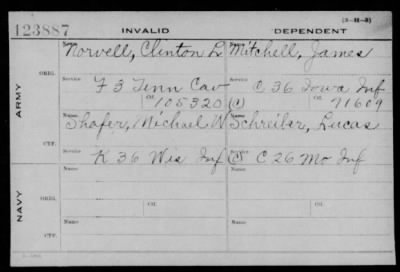 (3-H-3)
123887
INVALID
DEPENDENT
Name
Norvell, Clinton L Mitchell, James
ORIG.
Service
Service
F 3 Tenn Cav C 36 Iowa Inf
Ctf.
Ctf.
105320 (1) 71609
ARMY
Shafer, Michael W Schreiber, Lucas
CTF.
Service
Service
K 36 Wis Inf C 26 Mo Inf
Name
Name
ORIG.
Service
Ctf.
Service
Ctf.
NAVY
Name
Name
CTF.
Service
Service